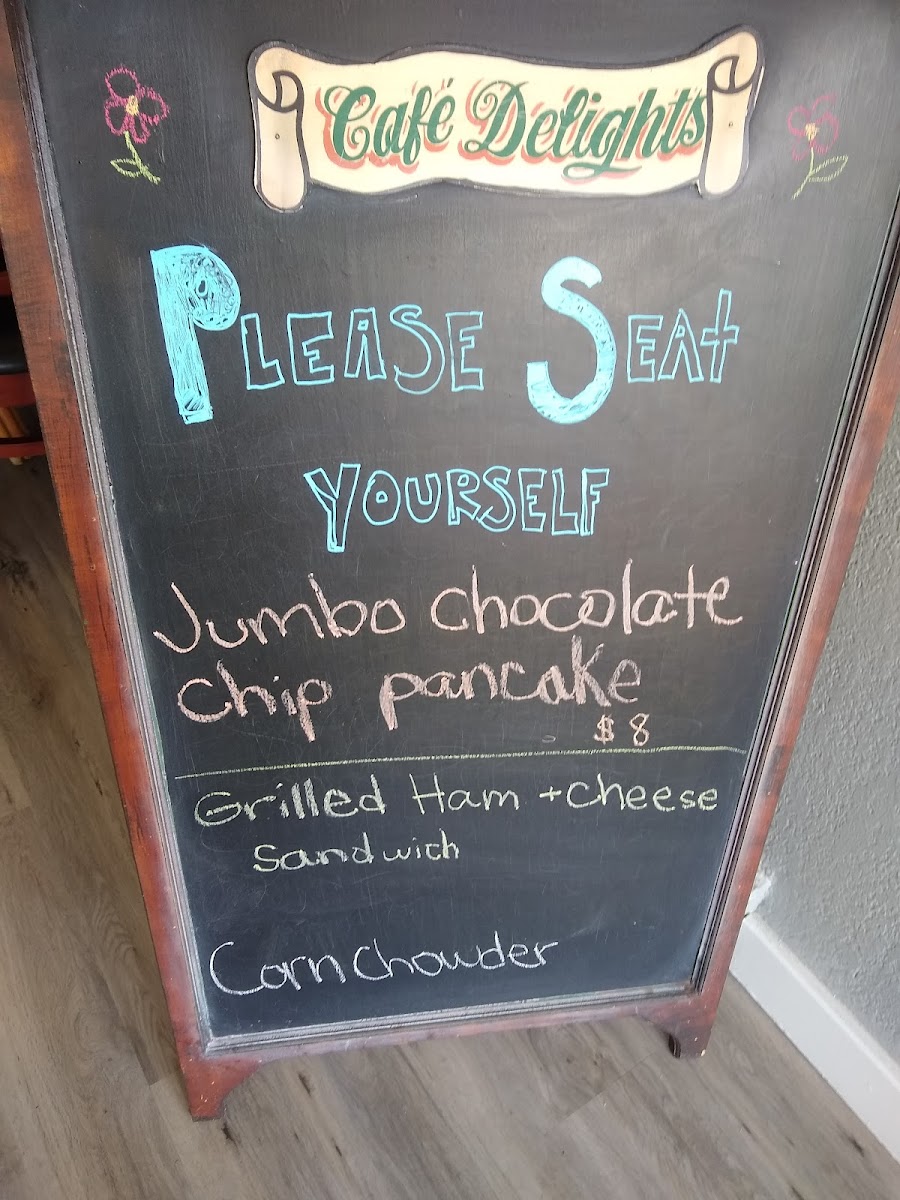 Café Delights
PLEASE SEAt
YOURSELF
Jumbo chocolate
chip pancake
$8
Grilled Ham + cheese
Sandwich
Corn chowder